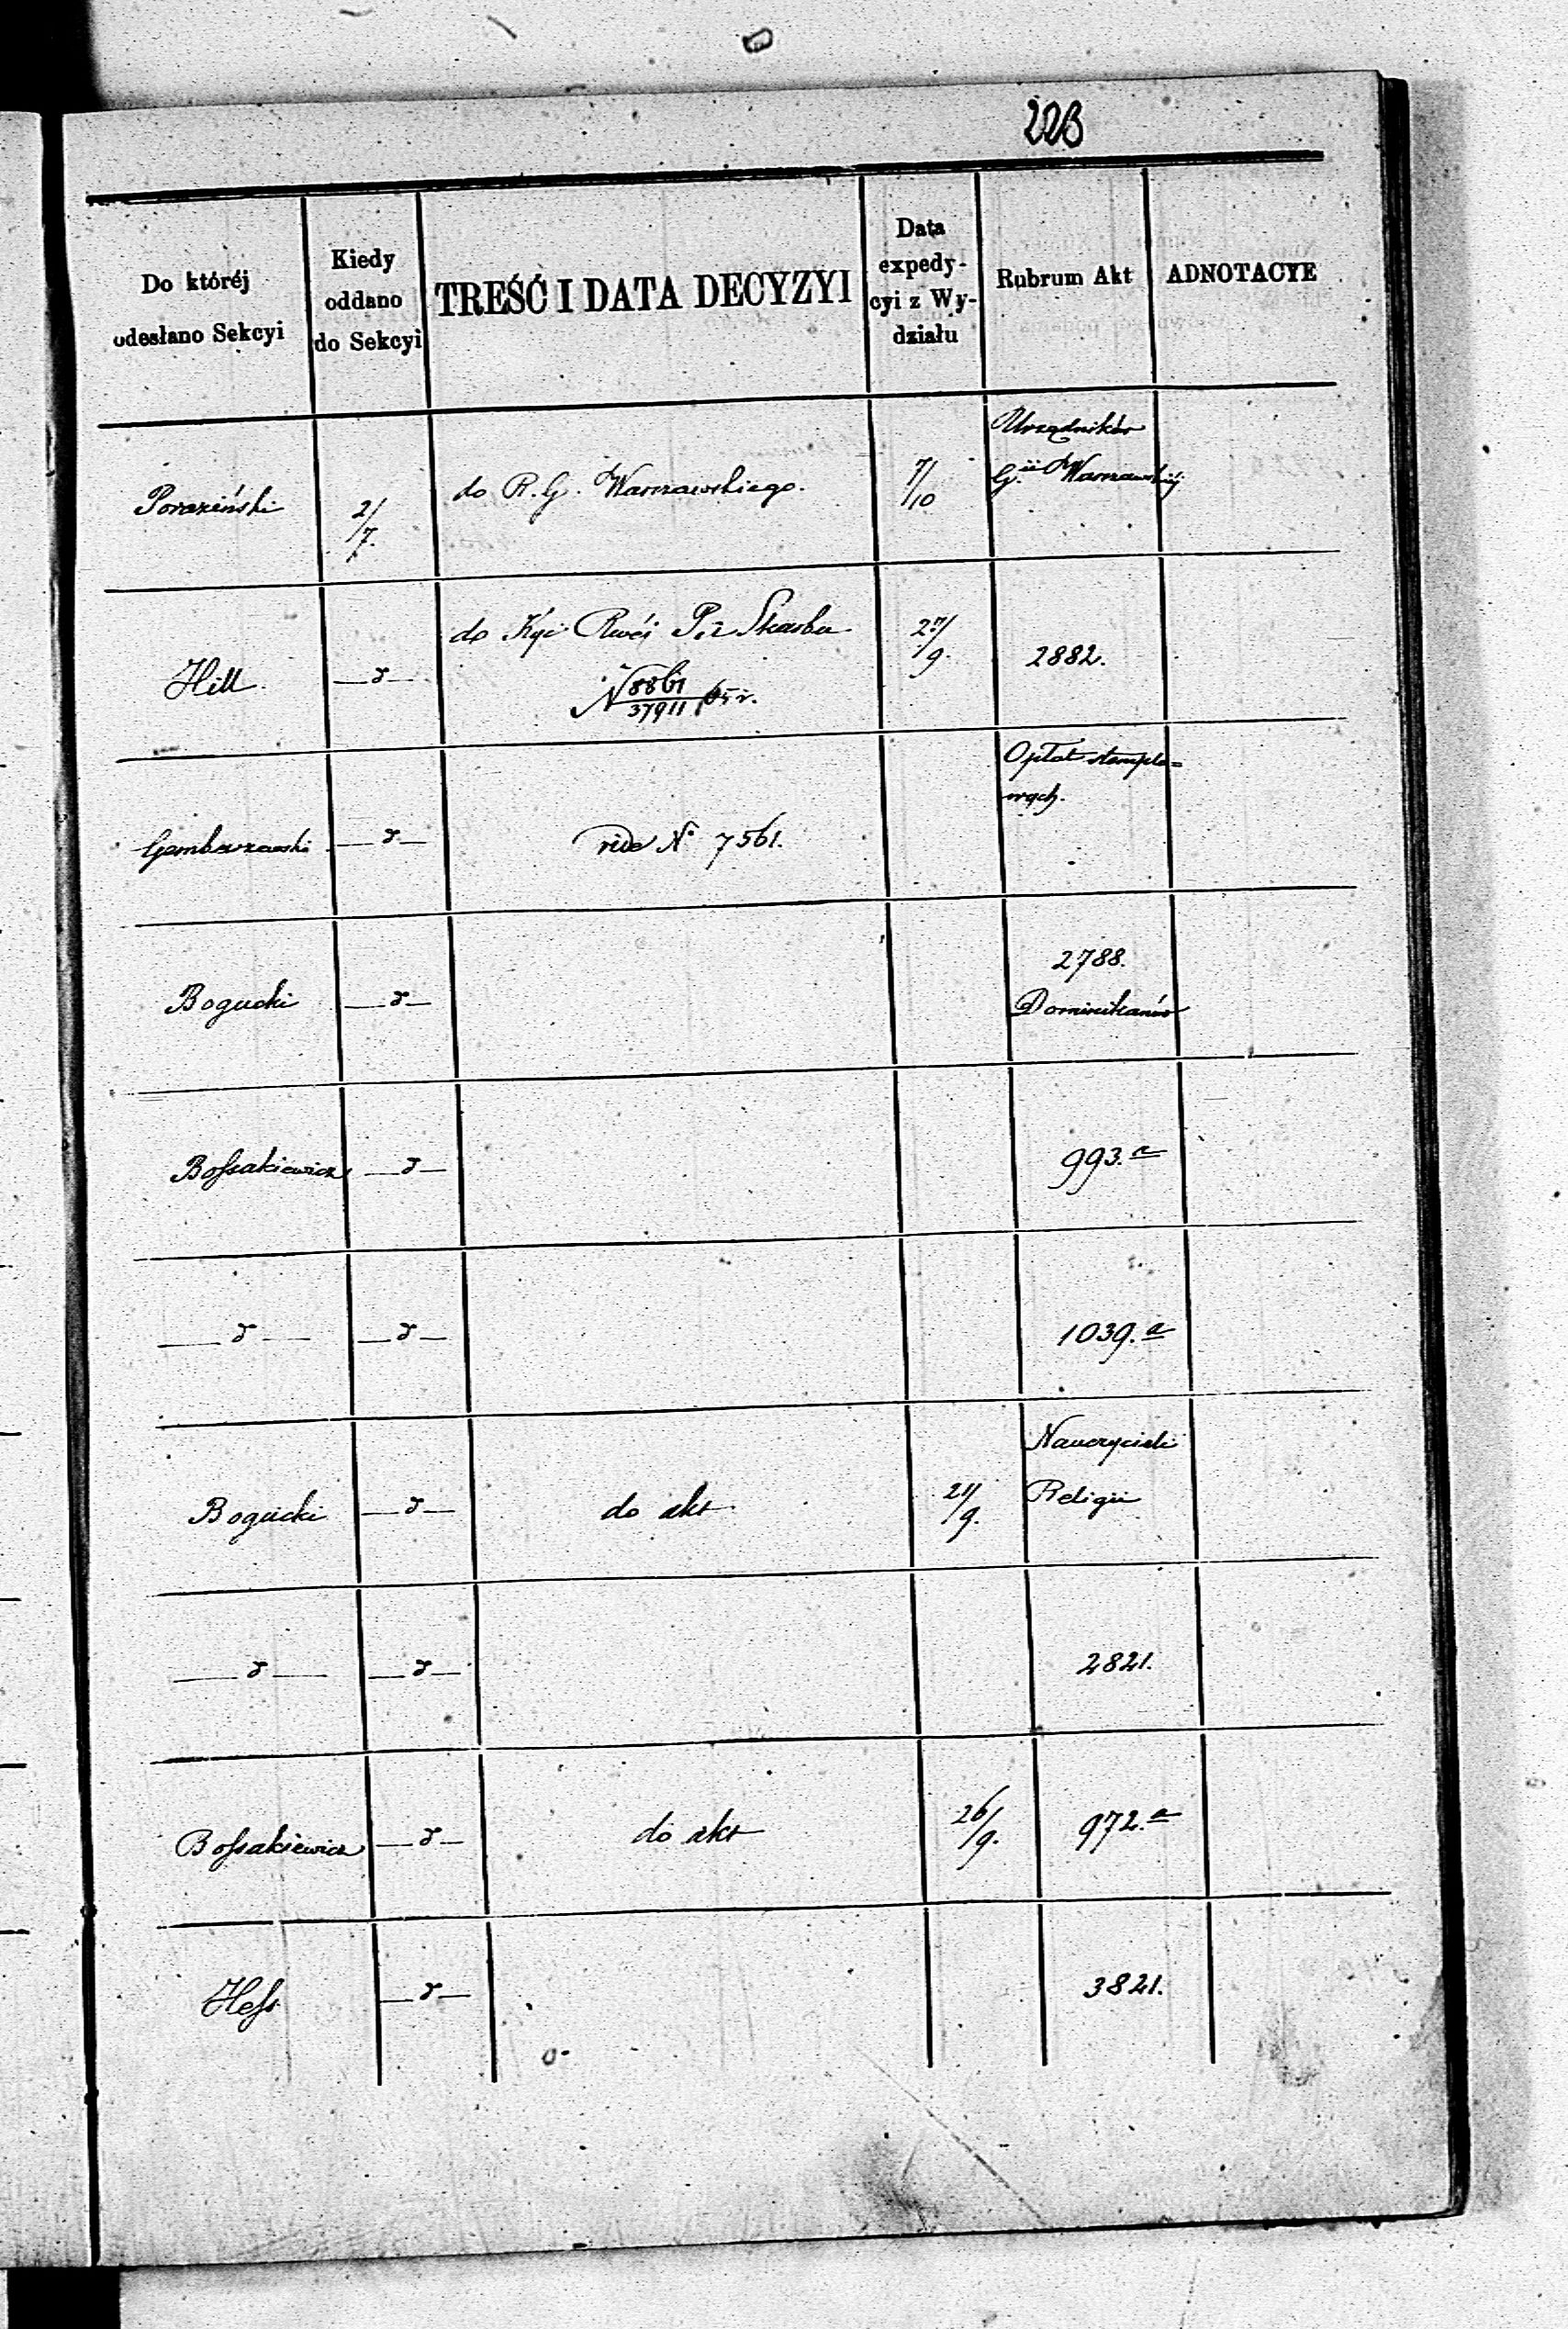 223
Do któréj odesłano Sekcyi
Kiedy oddano do Sekcyi
TREŚĆ I DATA DECYZYI
Data expedy- cyi z Wy- działu
Rubrum Akt
ADNOTACYE
Poraziński 2/7. do R. G. Warszawskiego. 7/10 Urzędników
G.ii Warszawskiéj
Hill. —d— do Skarbu 27/9. 2882.
N 8861/37911 /65 r.
Opłat stemplo=
wych.
—d— vide N° 7561.
2788.
Bogucki —d— Dominikanów
Bossakiewicz —d— 993.a
—d— —d— 1039.a
Nauczycieli
Bogucki —d— do akt 21/9. Religii
—d— —d— 2821.
Bossakiewicz —d— do akt 26/9. 972.a
Hess —d— 3821.